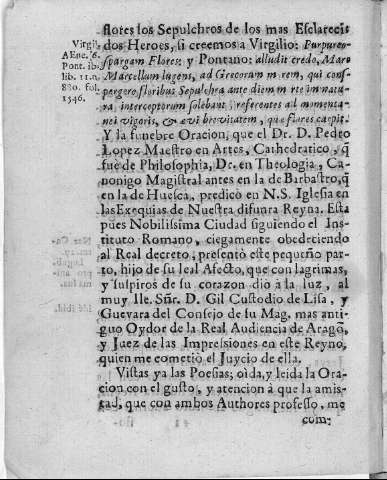 flores los Sepulchros de los mas Esclareci-
dos Heroes, si creemos a Virgilio: Purpureos
spargam Flores; y Pontano: alludit credo, Maro
Marcellum lugens, ad Grecorum m rem, qui cons-
pergere floribus Sepulchra ante diem m rte im natu-
ra, interceptorum solebant; referentes ad momenta-
nei vigoris, & ævi brevitatem, que flores carpit.
Y la funebre Oracion, que el Dr. D. Pedro
Lopez Maestro en Artes, Cathedratico, q̃
fue de Philosophia, Dr. en Theologia, Ca-
nonigo Magistral antes en la de Barbastro, q̃
en la de Huesca, predicò en N.S. Iglesia en
las Exequias de Nuestra difunta Reyna. Esta
pues Nobilissima Ciudad siguiendo el Ins-
tituto Romano, ciegamente obedeciendo
al Real decreto, presentò este pequeño par-
to, hijo de su leal Afecto, que con lagrimas,
y suspiros de su corazon diò à la luz, al
muy Ile. Sñr. D. Gil Custodio de Lisa, y
Guevara del Consejo de su Mag. mas anti-
guo Oydor de la Real Audiencia de Aragõ,
y Juez de las Impressiones en este Reyno,
quien me cometiò el Juycio de ella.
Vistas ya las Poesias; oìda, y leida la Ora-
cion con el gusto, y atencion à que la amis-
tad, que con ambos Authores professo, me
com-
Virgil.
AEne. 6.
Pont. ib.
lib. 11. n.
880. fol.
1546.